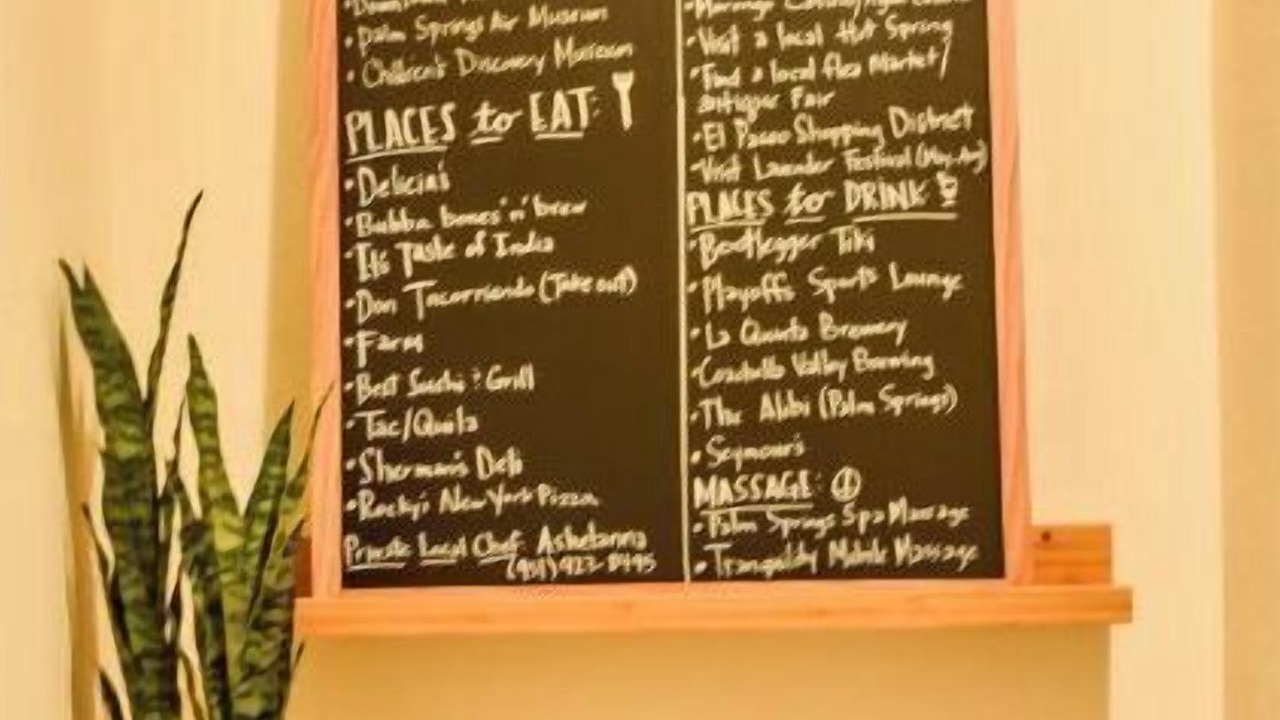 • Palm Springs Air Museum
• Children's Discovery Museum
PLACES to EAT:
• Delicia's
• Bubba bones 'n' brew
• It's Taste of India
• Don Tacorriendo (Take out)
• Farm
• Best Sushi & Grill
• Tac/Quila
• Sherman's Deli
• Rocky's New York Pizza
Private Local Chef: Ashetanna
(951) 927-
• Visit a local Hot Spring
• Find a local flea market/
antique Fair
• El Paseo Shopping District
• Visit Lavender Festival (May-Aug)
PLACES to DRINK
• Bootlegger Tiki
• Playoffs Sports Lounge
• La Quinta Brewery
• Coachella Valley Brewing
• The Alibi (Palm Springs)
• Seymour's
MASSAGE:
• Palm Springs Spa Massage
• Tranquility Mobile Massage